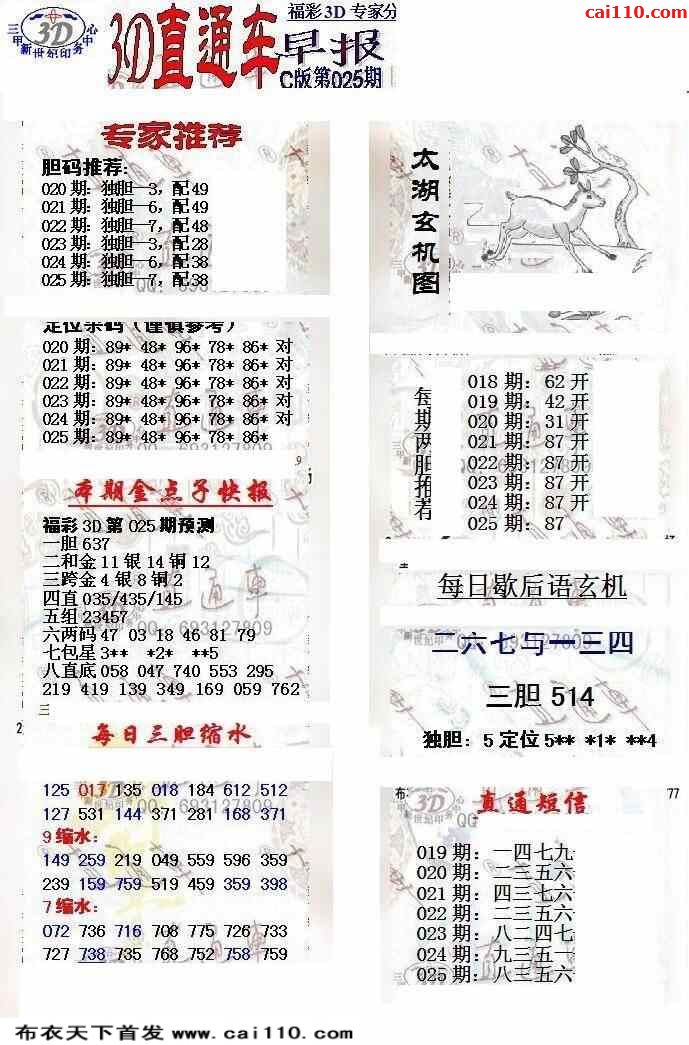 cai110.com
福彩3D 专家分
三甲新世纪印务中心
3D
3D直通车
早报
C版第025期
专家推荐
胆码推荐:
020期: 独胆—3, 配49
021期: 独胆—6, 配49
022期: 独胆—7, 配48
023期: 独胆—3, 配28
024期: 独胆—6, 配38
025期: 独胆—7, 配38
定位杀码（谨慎参考）
020期: 89* 48* 96* 78* 86* 对
021期: 89* 48* 96* 78* 86* 对
022期: 89* 48* 96* 78* 86* 对
023期: 89* 48* 96* 78* 86* 对
024期: 89* 48* 96* 78* 86* 对
025期: 89* 48* 96* 78* 86*
本期金点子快报
福彩3D第025期预测
一胆637
二和金11银14铜12
三跨金4银8铜2
四直035/435/145
五组23457
六两码47 03 18 46 81 79
七包星3** *2* **5
八直底058 047 740 553 295
219 419 139 349 169 059 762
三
2
每日三胆缩水
125 017 135 018 184 612 512
127 531 144 371 281 168 371
9缩水:
149 259 219 049 559 596 359
239 159 759 519 459 359 398
7缩水:
072 736 716 708 775 726 733
727 738 735 768 752 758 759
太湖玄机图
每期两胆推荐
018期: 62开
019期: 42开
020期: 31开
021期: 87开
022期: 87开
023期: 87开
024期: 87开
025期: 87
每日歇后语玄机
二六七与一三四
三胆 514
独胆: 5 定位5** *1* **4
布
77
直通短信
019期: 一四七九
020期: 二三五六
021期: 四三七六
022期: 二三五六
023期: 八二四七
024期: 九三五一
025期: 八三五六
布衣天下首发 www.cai110.com